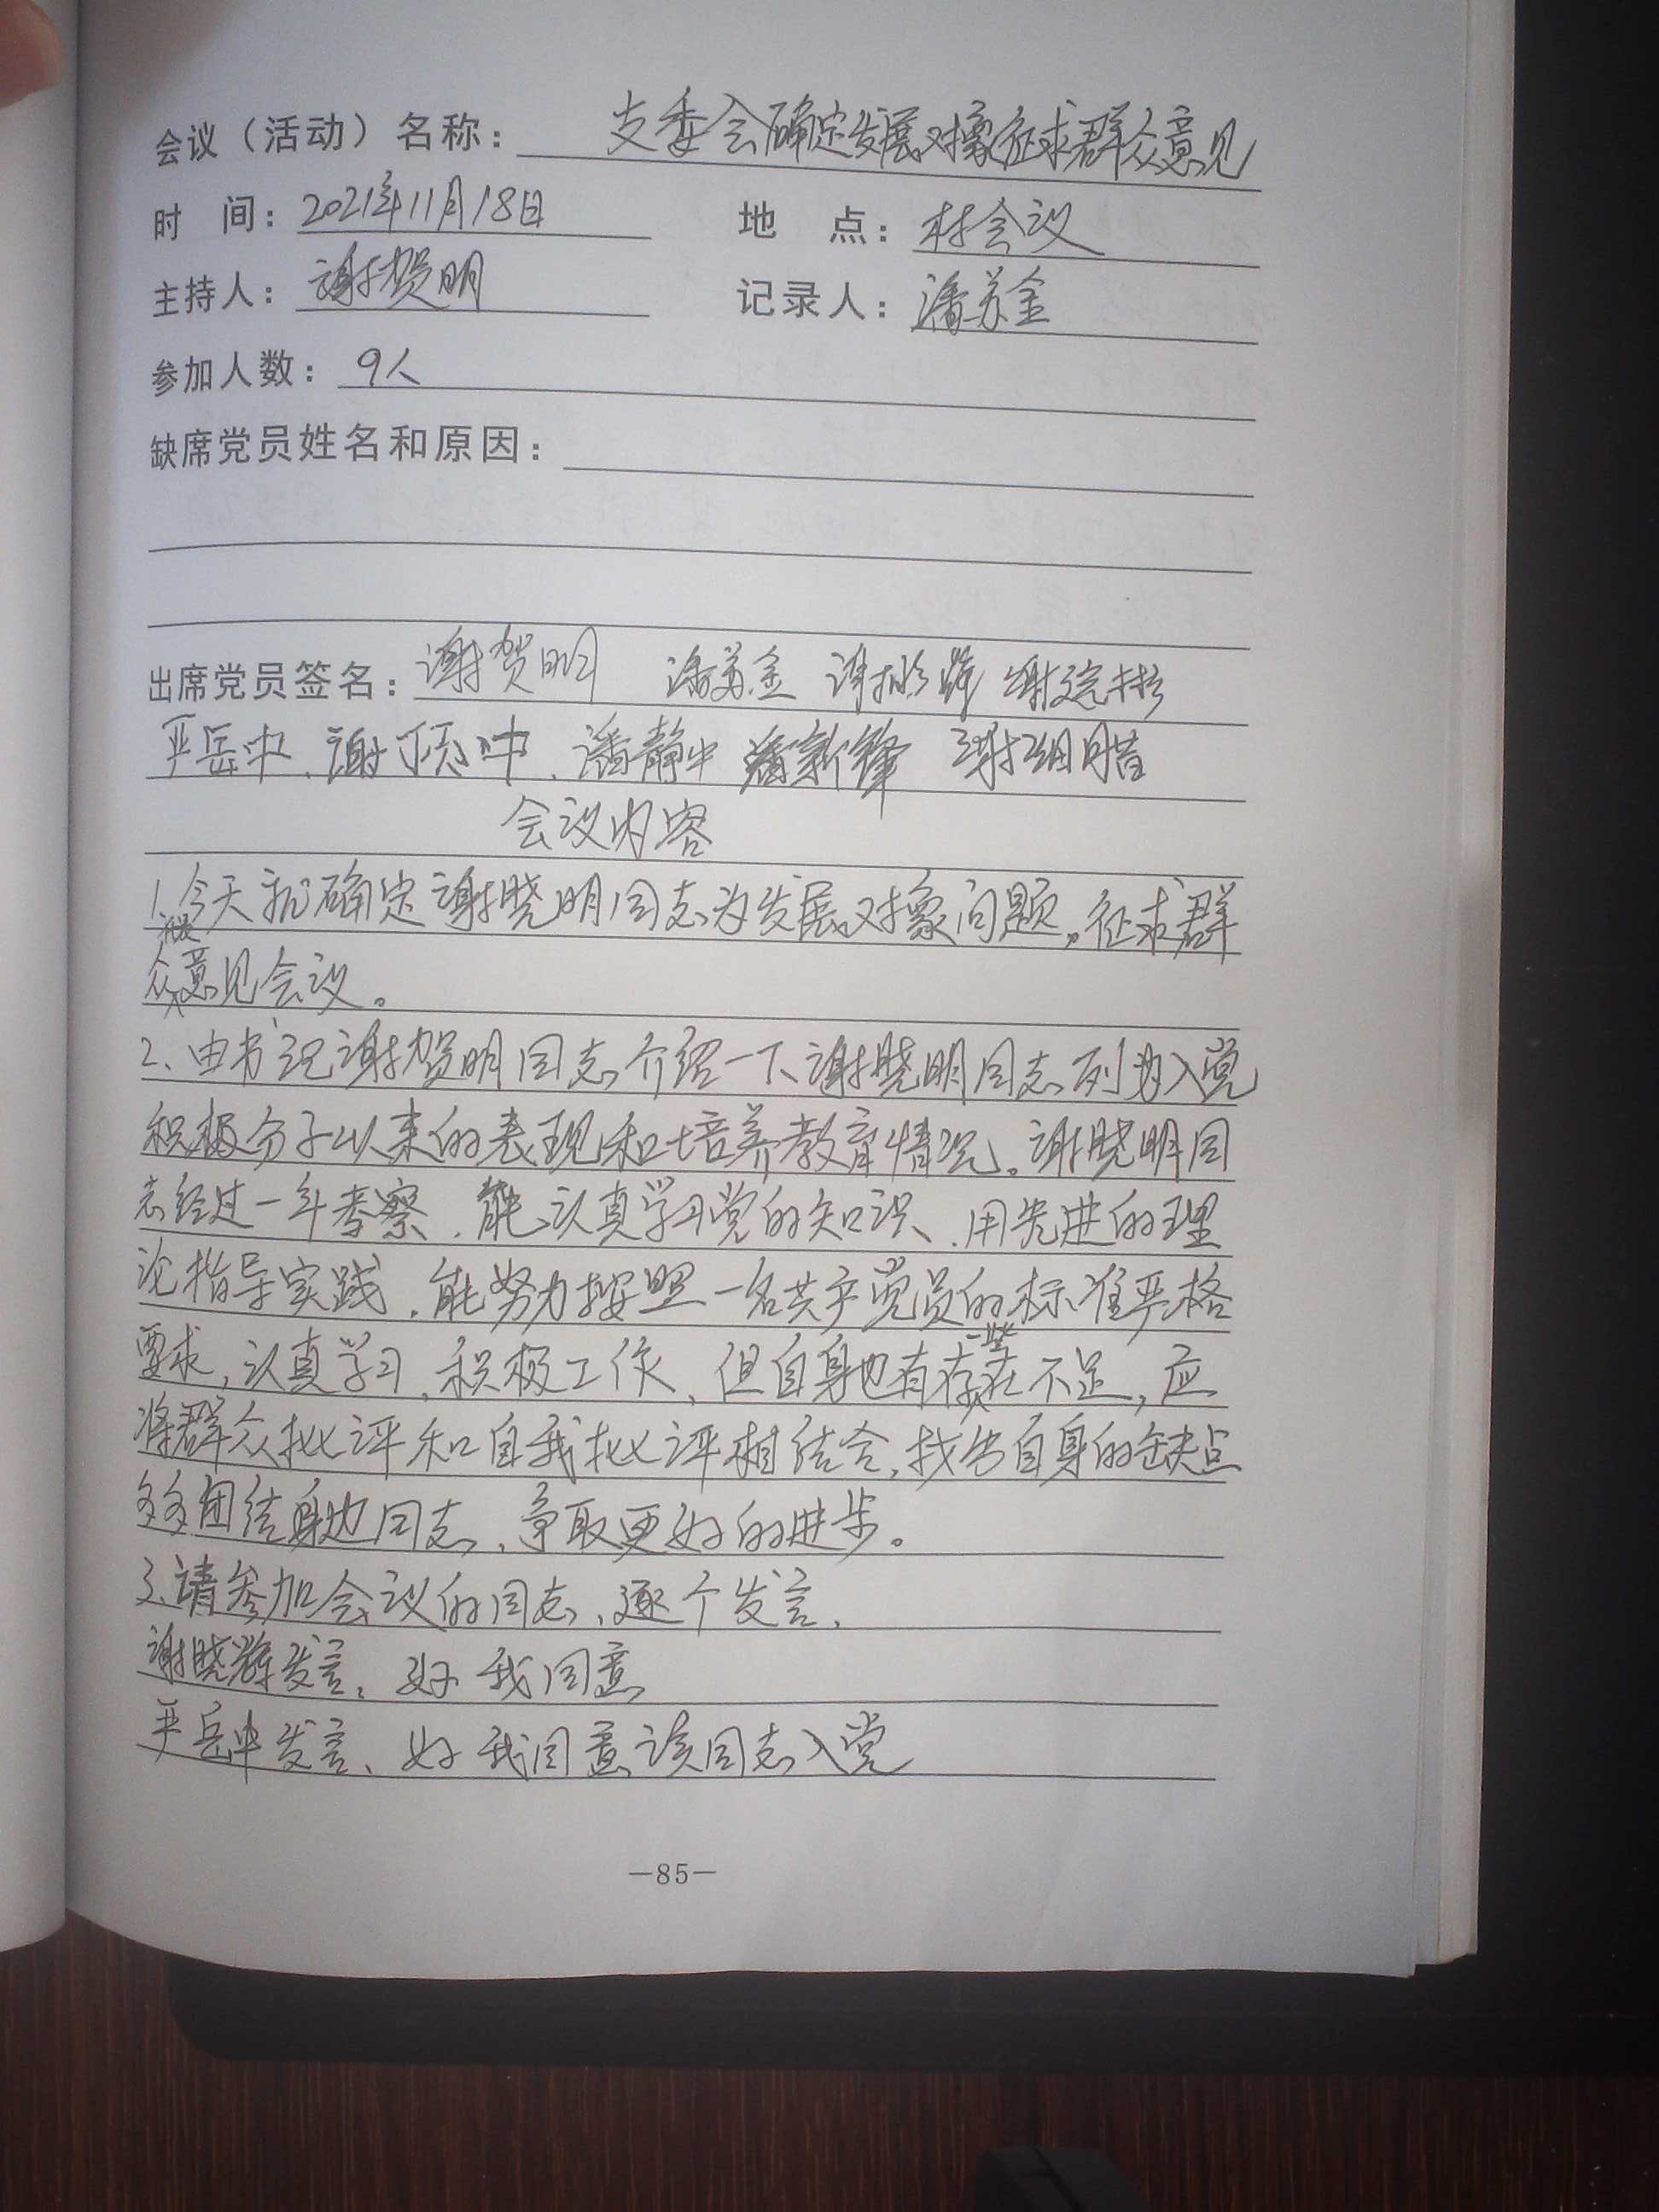 会议（活动）名称：支委会确定发展对象征求群众意见
时 间：2021年11月18日 地 点：村会议
主持人：谢贺明 记录人：潘苏金
参加人数：9人
缺席党员姓名和原因：
出席党员签名：谢贺明 潘苏金
严岳中、谢 中、潘静中 潘新锋
会议内容
1、今天就确定谢晓明同志为发展对象问题，征求群
众意见会议。
2、由书记谢贺明同志介绍一下、谢晓明同志列为入党
积极分子以来的表现和培养教育情况。谢晓明同
志经过一年考察，能认真学习党的知识、用先进的理
论指导实践，能努力按照一名共产党员的标准严格
要求，认真学习，积极工作、但自身也有存在一些不足，应
将群众批评和自我批评相结合，找出自身的缺点
多多团结身边同志，争取更好的进步。
3、请参加会议的同志、逐个发言，
谢晓辉发言：好 我同意
严岳中发言、好 我同意该同志入党
—85—